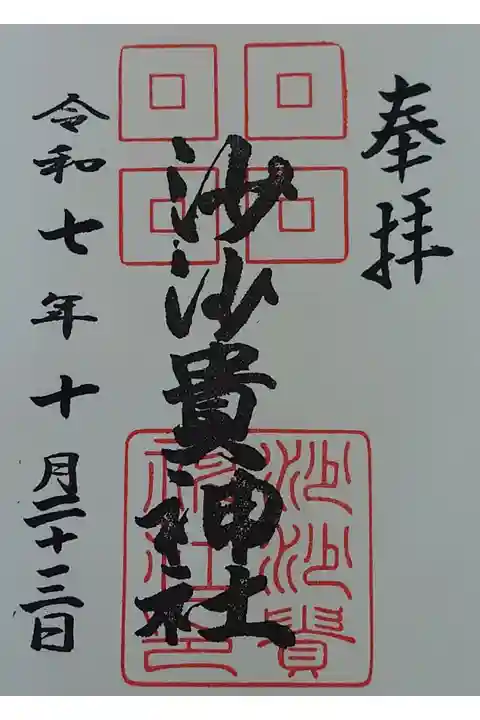 奉拝
沙沙貴神社
沙沙貴神社之印
令和七年十月二十三日